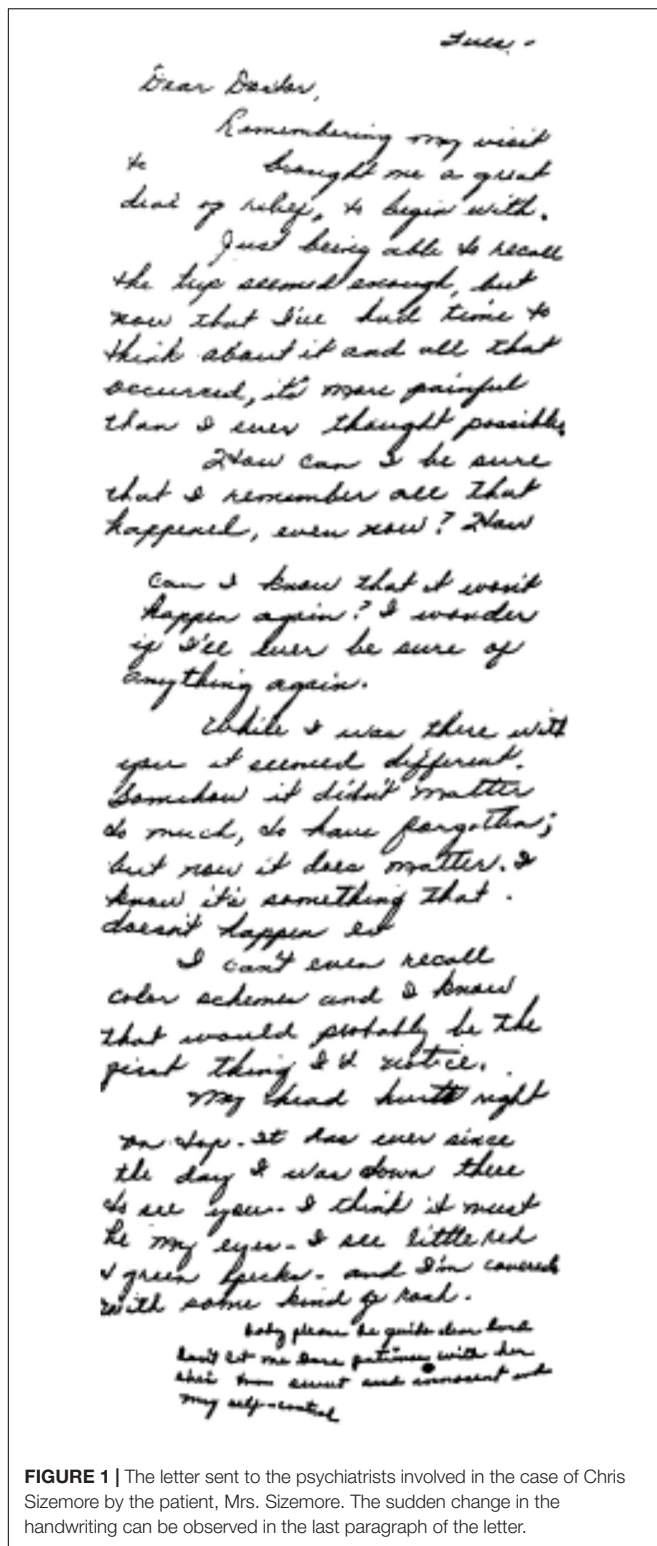 Tues. -
Dear Doctor,
Remembering my visit
to brought me a great
deal of relief, to begin with.
Just being able to recall
the trip seemed enough, but
now that I've had time to
think about it and all that
occurred, it's more painful
than I ever thought possible.
How can I be sure
that I remember all that
happened, even now? How
can I know that it won't
happen again? I wonder
if I'll ever be sure of
anything again.
While I was there with
you it seemed different.
Somehow it didn't matter
so much, to have forgotten;
but now it does matter. I
know it's something that.
doesn't happen
I can't even recall
color schemes and I know
that would probably be the
first thing I'd notice.
My head hurts right
on top. It has ever since
the day I was down there
to see you. I think it must
be my eyes - I see little red
& green specks - and I'm covered
with some kind of rash.
baby please be quite dear lord
don't let me lose patience with her
she's sweet and innocent and
my self-control
FIGURE 1 | The letter sent to the psychiatrists involved in the case of Chris
Sizemore by the patient, Mrs. Sizemore. The sudden change in the
handwriting can be observed in the last paragraph of the letter.